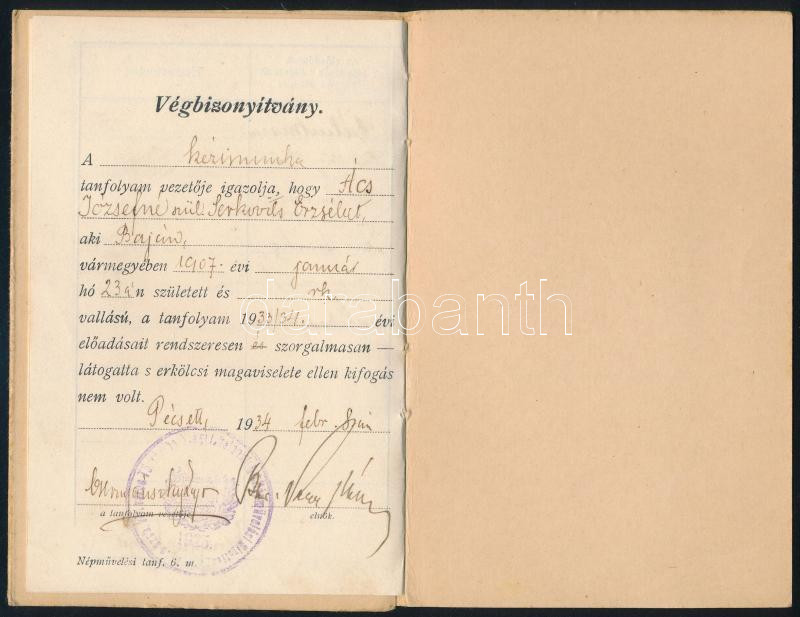 Végbizonyítvány.
A kézimunka
tanfolyam vezetője igazolja, hogy Ács
Józsefné szül. Serkovits Erzsébet,
aki Baján,
vármegyében 1907. évi január
hó 23 á n született és rk.
vallású, a tanfolyam 1933/34. évi
előadásait rendszeresen és szorgalmasan —
látogatta s erkölcsi magaviselete ellen kifogás
nem volt.
Pécsett, 1934 febr. 8án
a tanfolyam vezetője elnök.
Népművelési tanf. 6. m.
darabanth